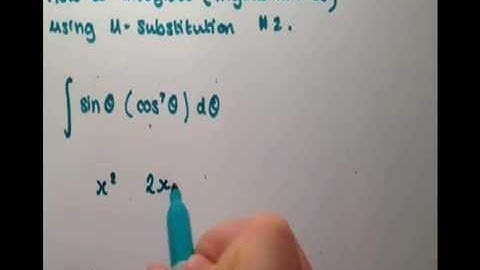 using U-Substitution #2.
∫ sinθ (cos⁷θ) dθ
x² 2x